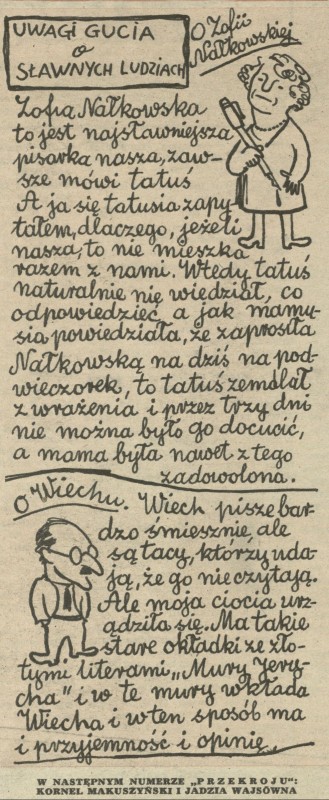 UWAGI GUCIA
o
SŁAWNYCH LUDZIACH
O Zofii
Nałkowskiej
Zofia Nałkowska
to jest najsławniejsza
pisarka nasza, zaw-
sze mówi tatuś
A ja się tatusia zapy-
tałem, dlaczego, jeżeli
nasza, to nie mieszka
razem z nami. Wtedy tatuś
naturalnie nie wiedział, co
odpowiedzieć a jak mamu-
sia powiedziała, że zaprosiła
Nałkowską na dziś na pod-
wieczorek, to tatuś zemdlał
z wrażenia i przez trzy dni
nie można było go docucić,
a mama była nawet z tego
zadowolona.
O Wiechu. Wiech pisze bar-
dzo śmiesznie, ale
są tacy, którzy uda-
ją, że go nie czytają.
Ale moja ciocia urz-
ądziła się. Ma takie
stare okładki ze zło-
tymi literami „Mury Jery-
cha" i w te mury wkłada
Wiecha i w ten sposób ma
i przyjemność i opinię.
W NASTĘPNYM NUMERZE „PRZEKROJU":
KORNEL MAKUSZYŃSKI I JADZIA WAJSÓWNA